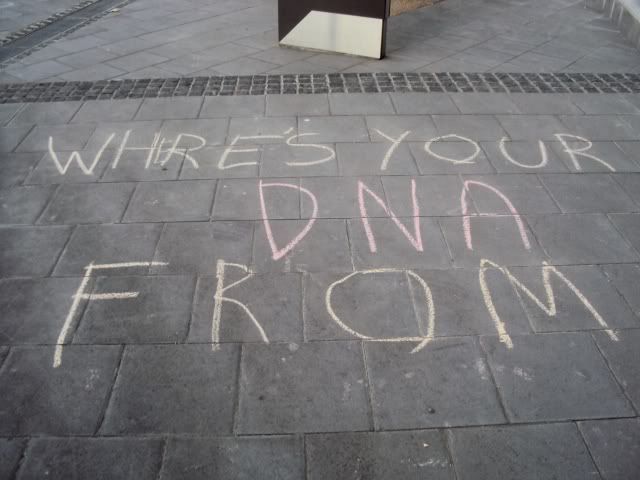 WHRE'S YOUR
DNA
FROM